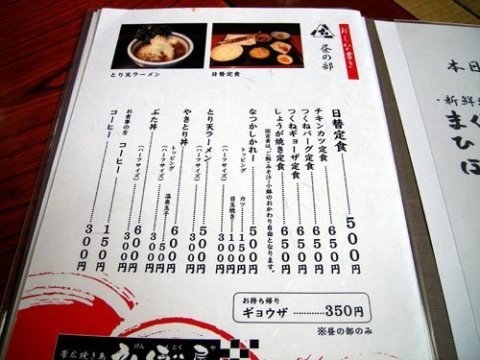 おしながき
昼の部
とり天ラーメン
日替定食
日替定食 500円
チキンカツ定食 650円
つくねバーグ定食 650円
つくねギョーザ定食 650円
しょうが焼き定食 650円
定食は、ご飯・みそ汁・小鉢のおかわり自由となります。
なつかしかれー 500円
トッピング カツ 150円
目玉焼き 100円
(ハーフサイズ) 350円
とり天ラーメン 500円
(ハーフサイズ)
やきとり丼 600円
トッピング 温泉玉子 50円
(ハーフサイズ)
ぶた丼 600円
(ハーフサイズ) 350円
お食事のあと
コーヒー 150円
コーヒー 300円
お持ち帰り
ギョウザ 350円
※昼の部のみ
帯広焼き鳥
げんとくや
本日
・新鮮
まぐ
ひ
ほ